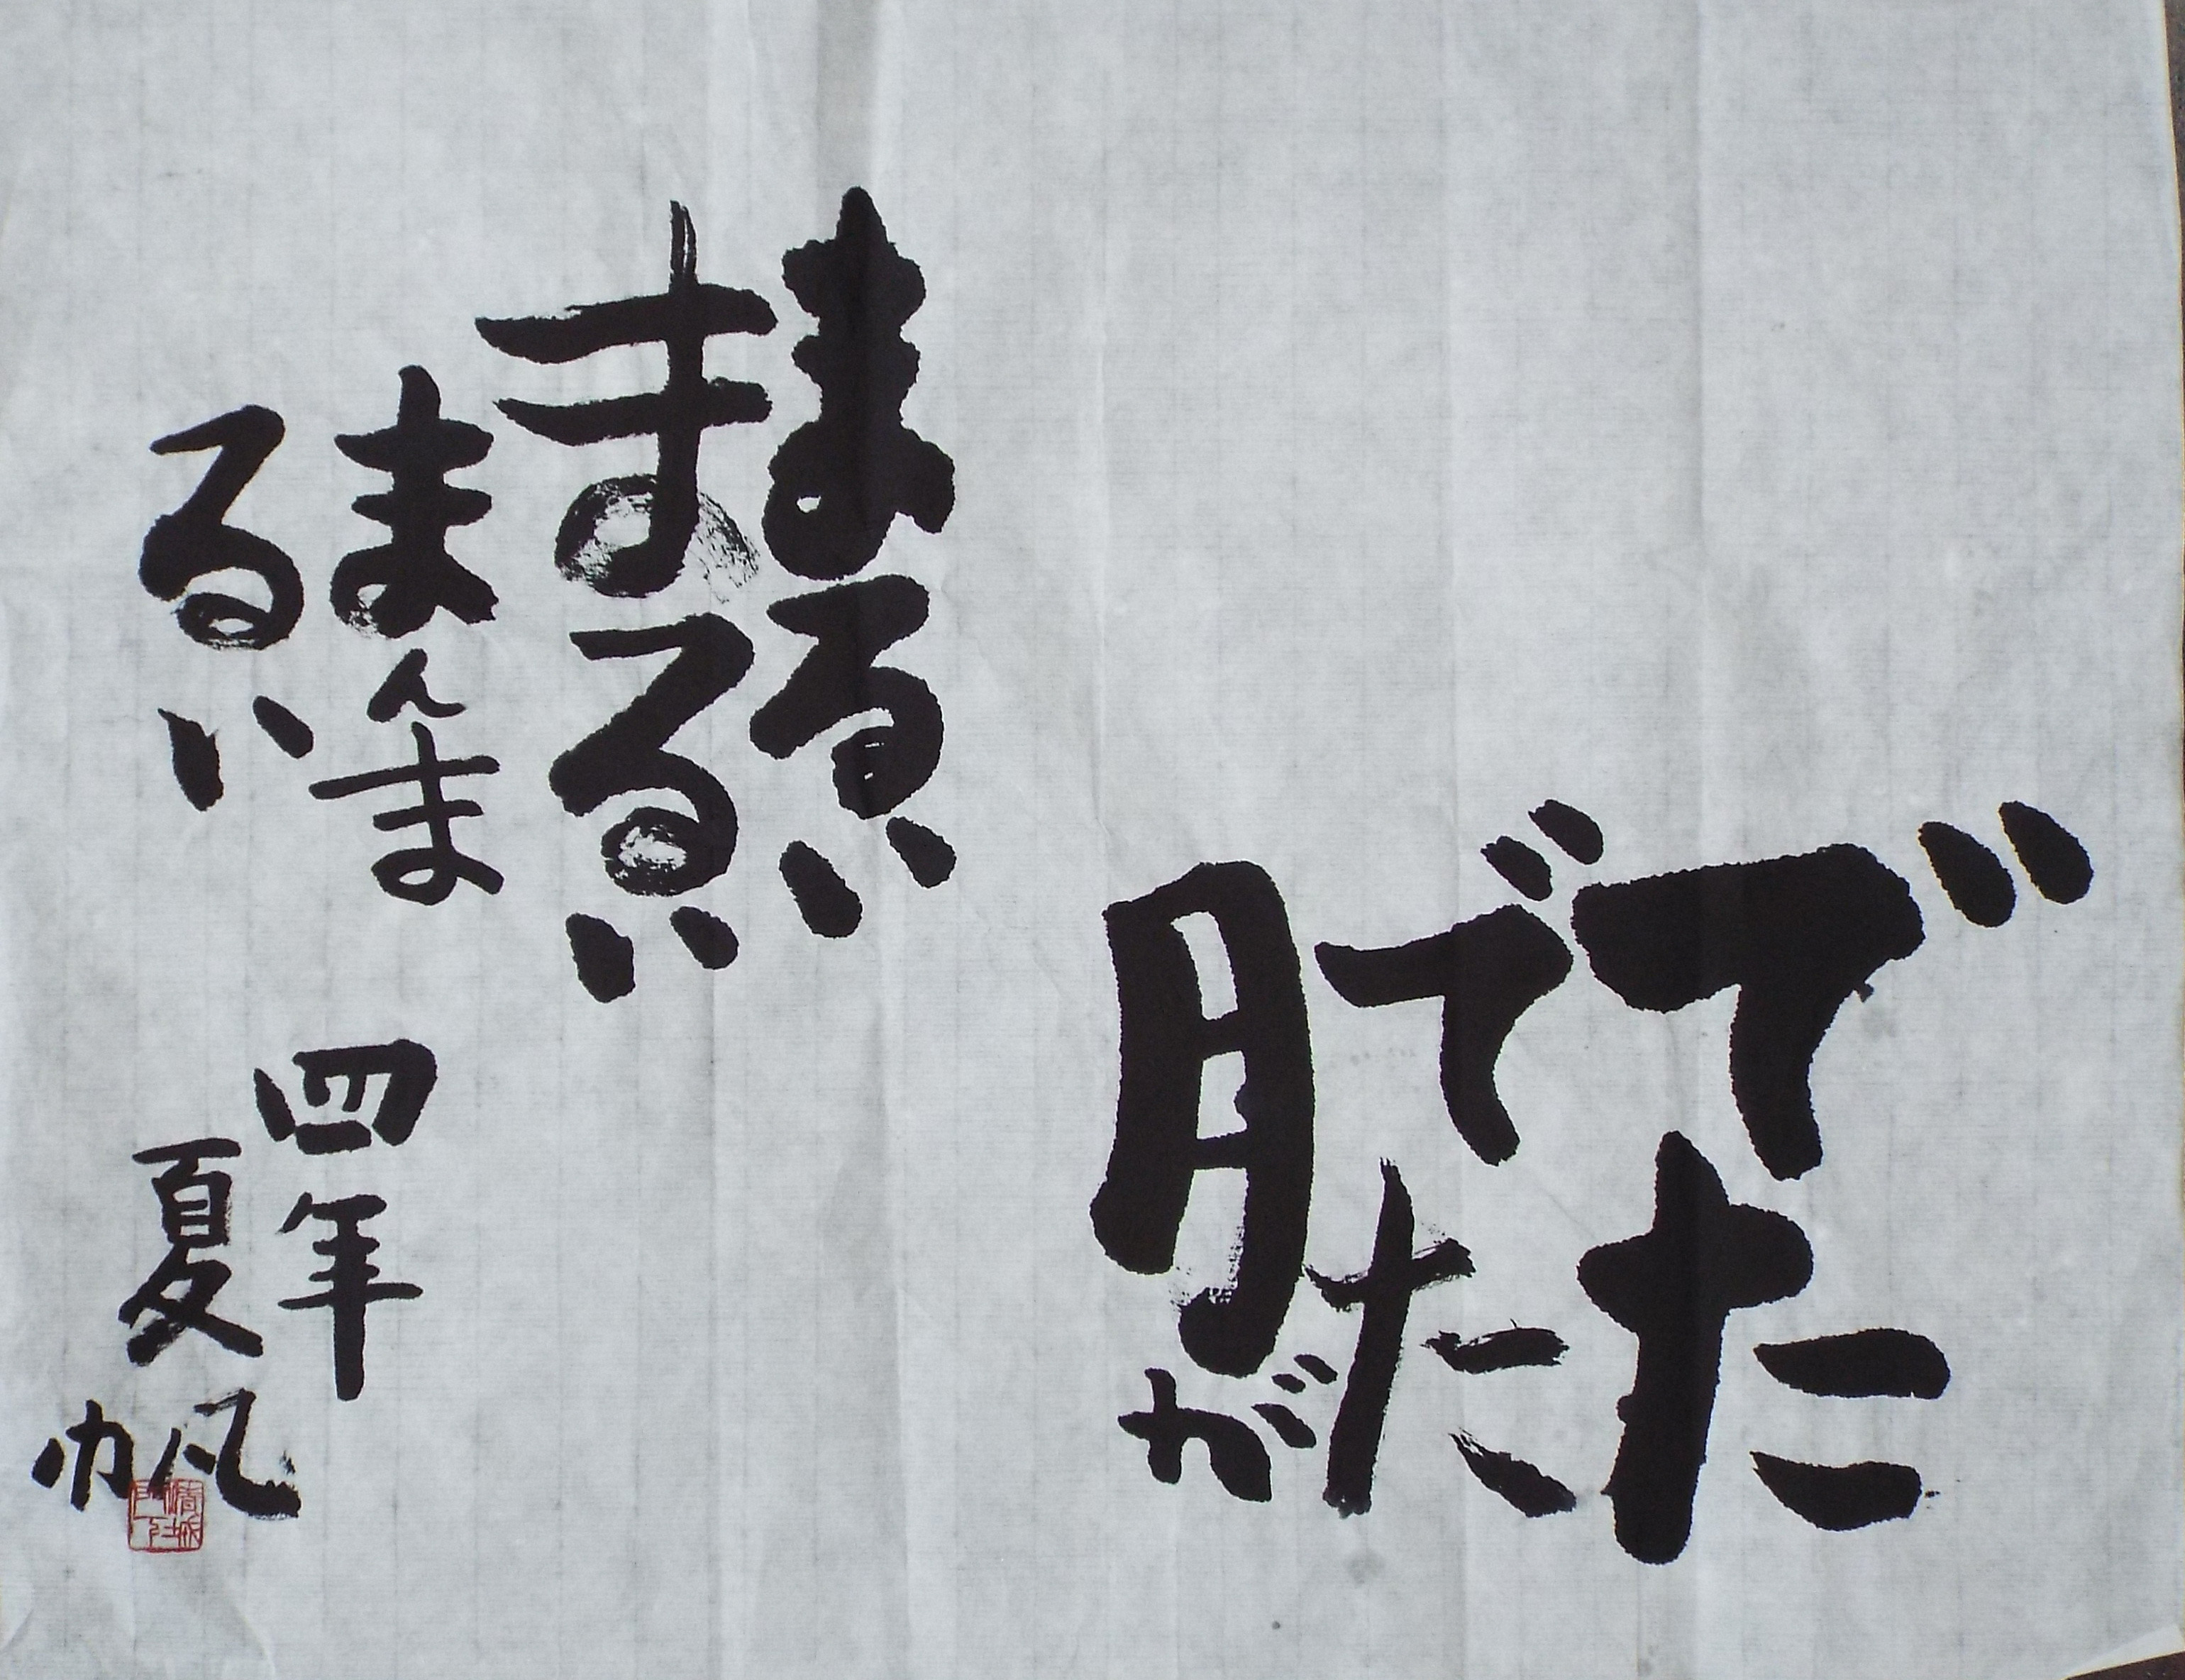 でた
でた
月が
まるい
まるい
まんま
るい
四年
夏帆